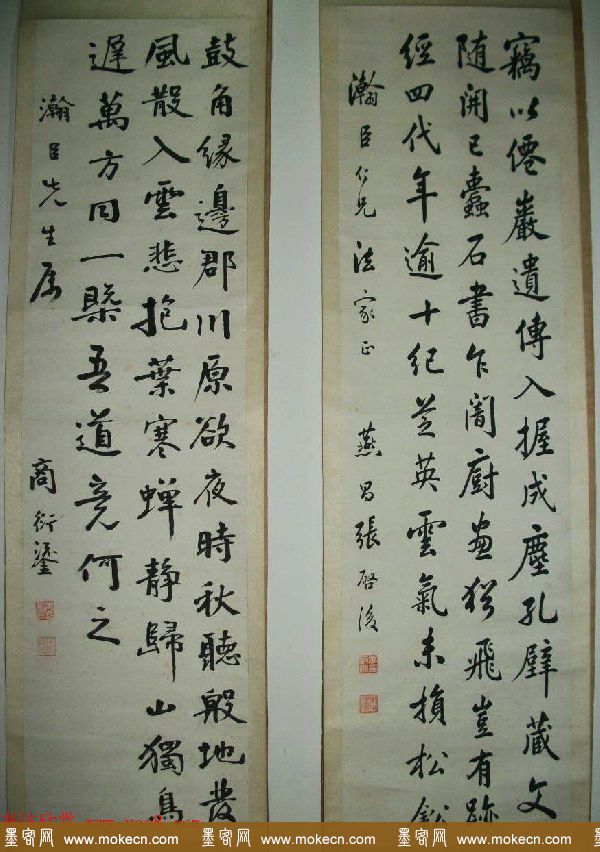 竊以僊巖遺傳入握成塵孔壁藏文
随開已蠹石書乍闇廚畫猶飛豈有跡
經四代年逾十紀芝英雲氣未損松
瀚臣仁兄法家正 張啓後
鼓角緣邊郡川原欲夜時秋聽殷地發
風散入雲悲抱葉寒蟬静歸山獨鳥
遲萬方同一槩吾道竟何之
瀚臣先生属 商衍鎏
墨客网 www.mokecn.com 墨客网 www.mokecn.com 墨客网 www.mokecn.com